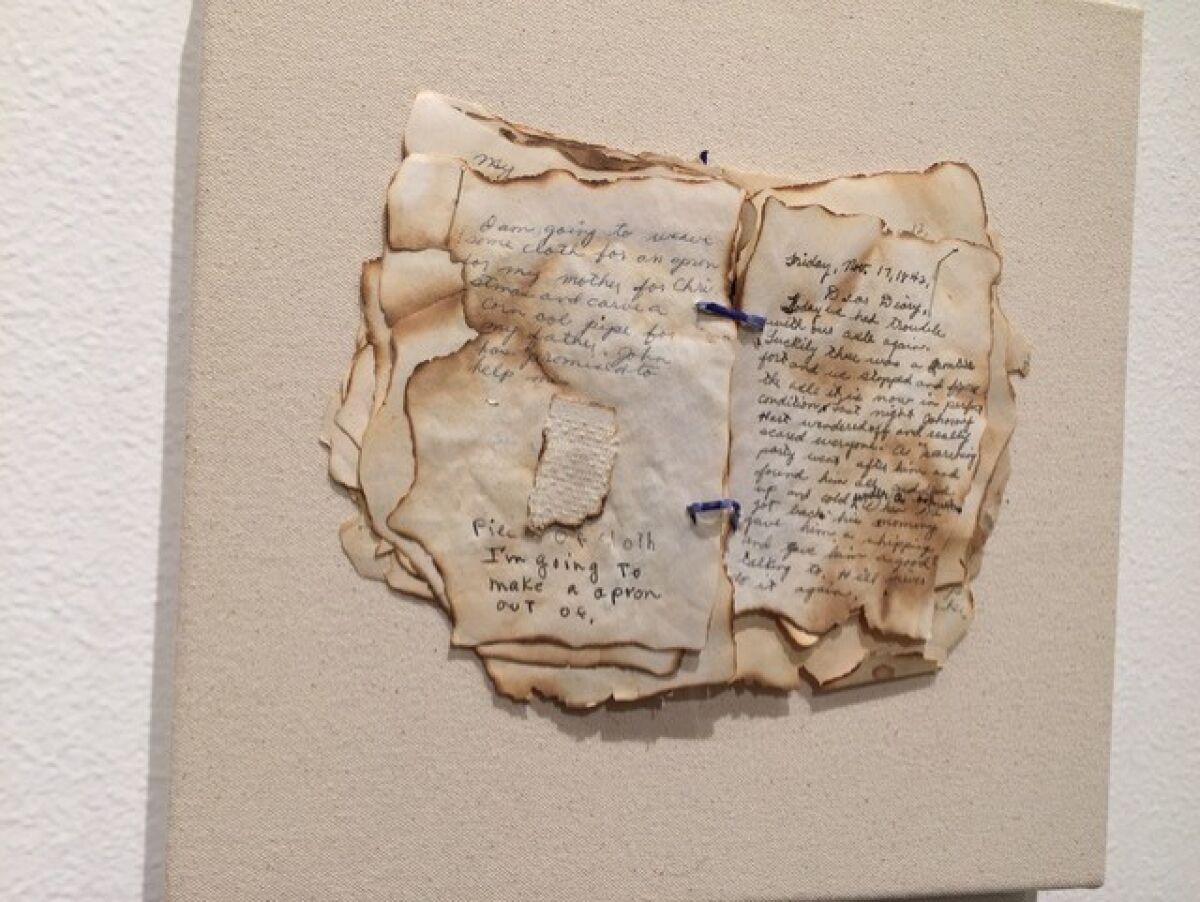 My
I am going to weave
some cloth for an apron
for my mother for Chri
stmas and carve a
corn cob pipe for
my father. John
has promised to
help m
Piec of cloth
I'm going To
make a apron
ouT of.
Friday, Nov. 17, 1842,
Dear Diary,
Today we had trouble
with our axle again.
Luckily there was a
fort and we stopped and
the axle it is now in perfect
condition. Last night Johnny
Hart wandered off and really
scared everyone. A searching
party went after him and
found him all
up and cold under a
got back his mommy
gave him a whipping
and gave him a good
talking to. He'll never
do it again.